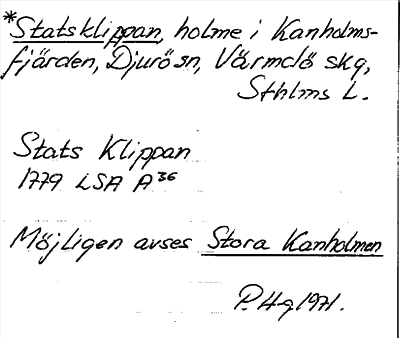 *Statsklippan, holme i Kanholms-
fjärden, Djurö sn, Värmdö skg,
Sthlms L.
Stats Klippan
1779 LSA A 36
Möjligen avses Stora Kanholmen
P. Hg 1971.